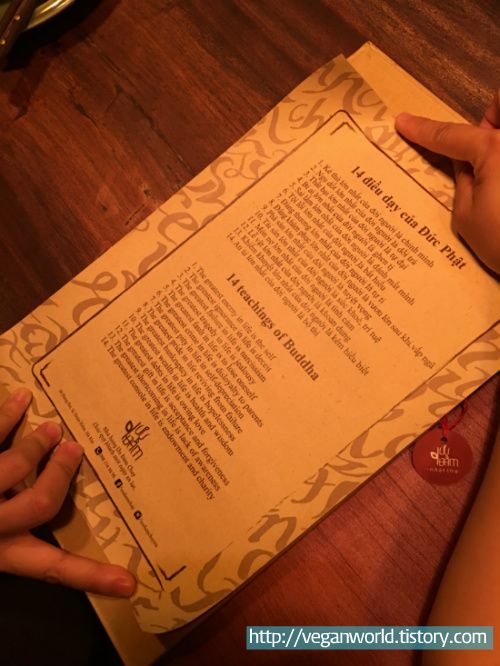 14 điều dạy của Đức Phật
1. Kẻ thù lớn nhất của đời người là chính mình
2. Ngu dốt lớn nhất của đời người là dối trá
3. Thất bại lớn nhất của đời người là tự đại
4. Bi ai lớn nhất của đời người là ghen tị
5. Sai lầm lớn nhất của đời người là đánh mất mình
6. Tội lỗi lớn nhất của đời người là bất hiếu
7. Đáng thương lớn nhất của đời người là tự ti
8. Đáng khâm phục lớn nhất của đời người là vươn lên sau khi vấp ngã
9. Phá sản lớn nhất của đời người là tuyệt vọng
10. Tài sản lớn nhất của đời người là sức khoẻ, trí tuệ
11. Món nợ lớn nhất của đời người là tình cảm
12. Lễ vật lớn nhất của đời người là khoan dung
13. Khiếm khuyết lớn nhất của đời người là kém hiểu biết
14. An ủi lớn nhất của đời người là bố thí
14 teachings of Buddha
1. The greatest enemy in life is the self
2. The greatest in life is deceit
3. The greatest failure in life is narcissism
4. The greatest tragedy in life is jealousy
5. The greatest mistake in life is to lose oneself
6. The greatest in life is disloyalty to parents
7. The greatest pity in life is self-depreciation
8. The greatest pride in life is revival from failure
9. The greatest bankruptcy in life is hopelessness
10. The greatest in life is health and wisdom
11. The greatest debt in life is owing love
12. The greatest gift in life is acceptance and forgiveness
13. The greatest shortcoming in life is lack of awareness
14. The greatest comfort in life is endowment and charity
ƯU ĐÀM
Nhà hàng Ưu Đàm Chay
ƯU ĐÀM
http://veganworld.tistory.com